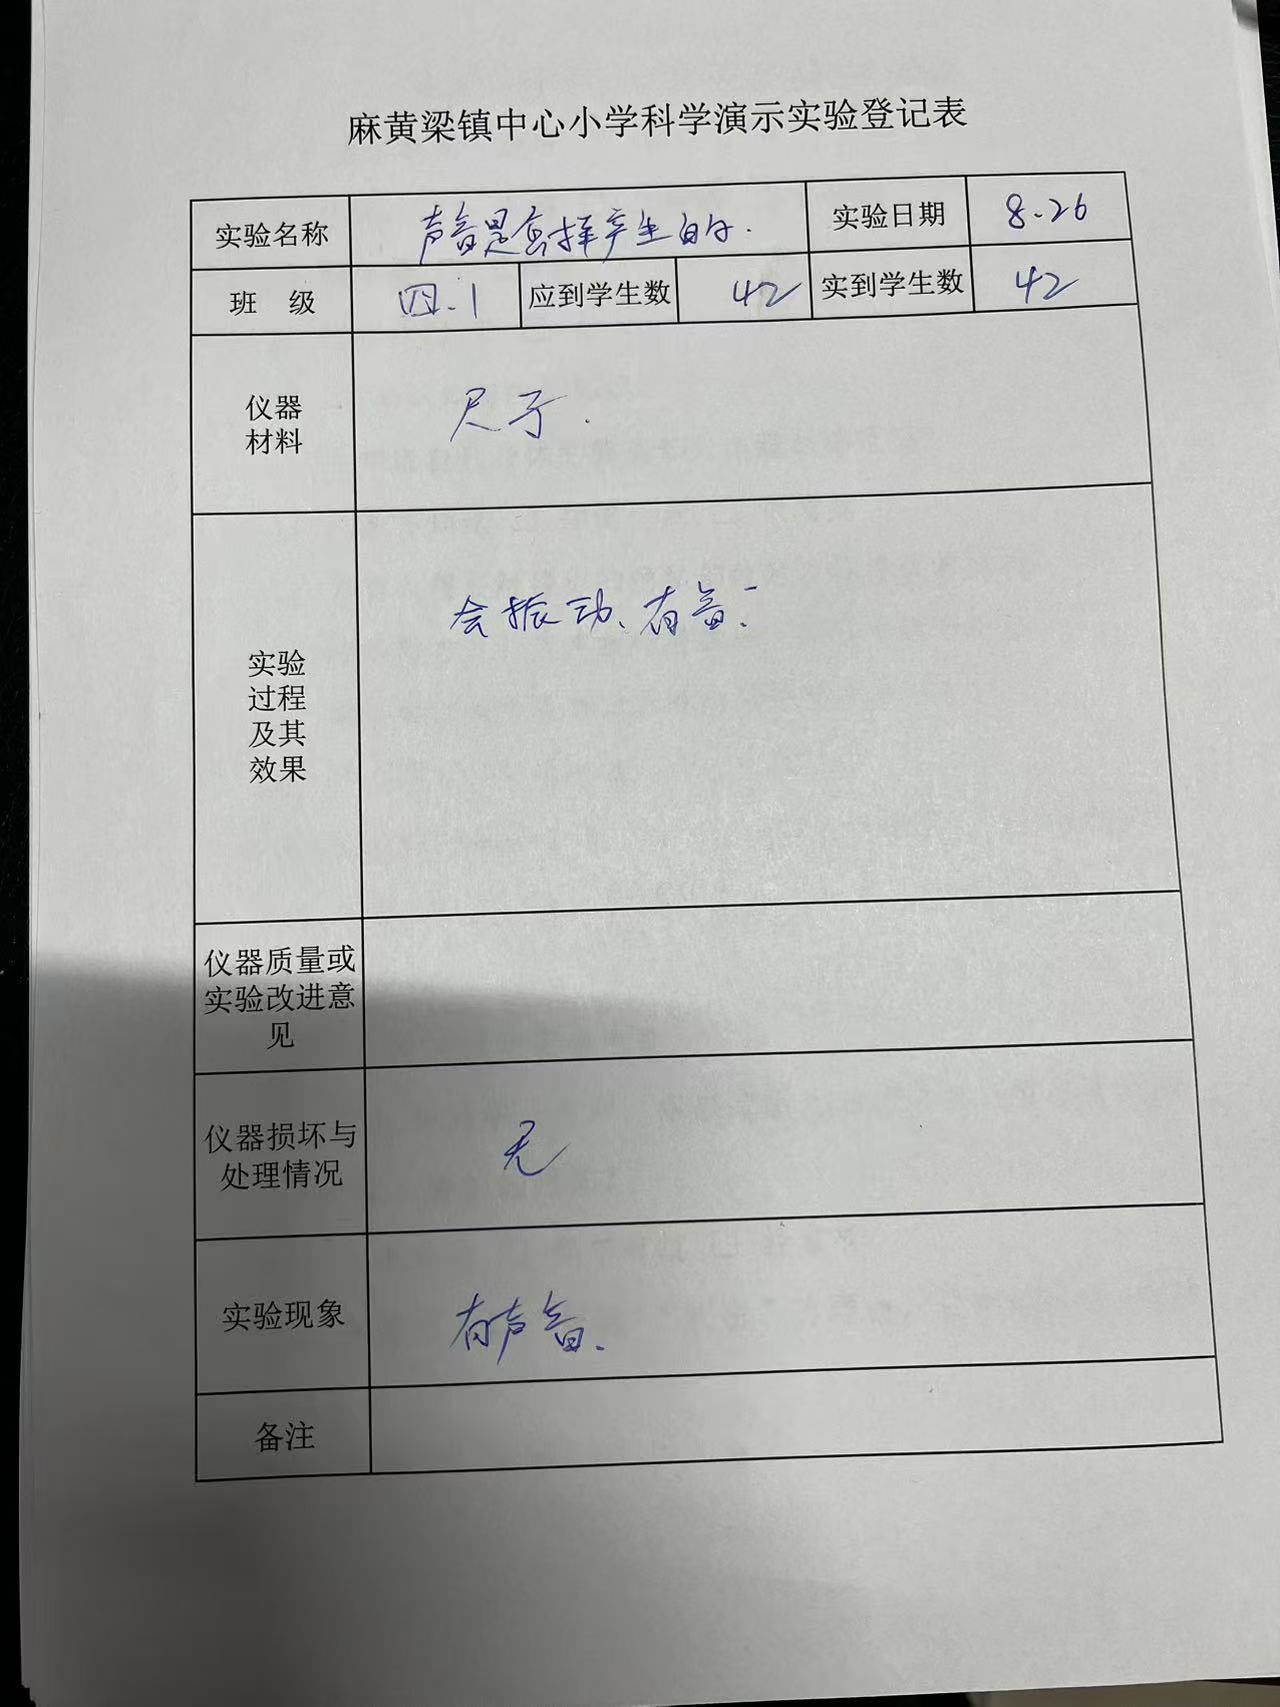 麻黄梁镇中心小学科学演示实验登记表
实验名称 声音是怎样产生的. 实验日期 8.26
班 级 四.1 应到学生数 42 实到学生数 42
仪器
材料
尺子.
实验
过程
及其
效果
会振动、有音.
仪器质量或
实验改进意
见
仪器损坏与
处理情况
无
实验现象 有声音.
备注